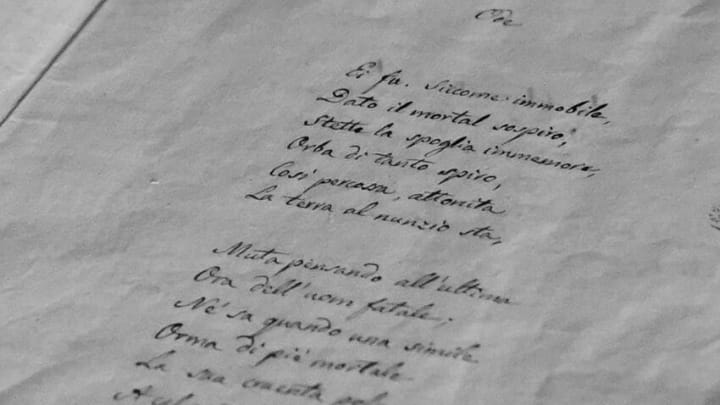 Ode
Ei fu. Siccome immobile,
Dato il mortal sospiro,
Stette la spoglia immemore,
Orba di tanto spiro,
Così percossa, attonita
La terra al nunzio sta,
Muta pensando all'ultima
Ora dell'uom fatale;
Nè sa quando una simile
Orma di piè mortale
La sua cruenta
A